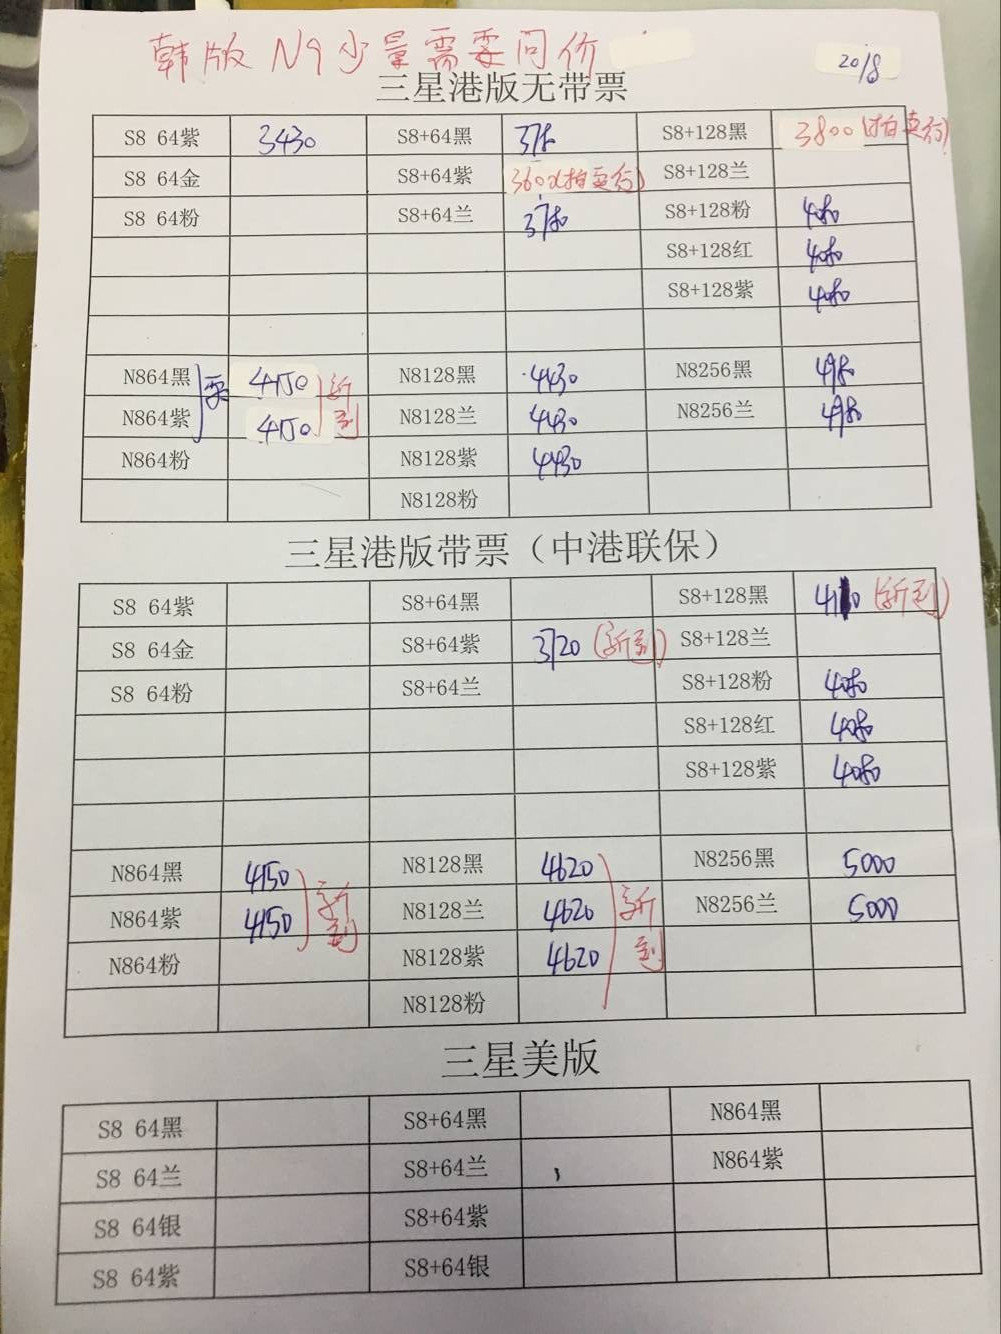 韩版 N9少量需要问价
20/8
三星港版无带票
S8 64紫 3430 S8+64黑 S8+128黑 3800
S8 64金 S8+64紫 S8+128兰
S8 64粉 S8+64兰 S8+128粉
S8+128红
S8+128紫
N864黑 要 4150 新到 N8128黑 4430 N8256黑
N864紫 4150 N8128兰 4430 N8256兰
N864粉 N8128紫 4430
N8128粉
三星港版带票（中港联保）
S8 64紫 S8+64黑 S8+128黑 (新到)
S8 64金 S8+64紫 3720 (新到) S8+128兰
S8 64粉 S8+64兰 S8+128粉
S8+128红
S8+128紫
N864黑 4150 新到 N8128黑 4620 新到 N8256黑 5000
N864紫 4150 N8128兰 4620 N8256兰 5000
N864粉 N8128紫 4620
N8128粉
三星美版
S8 64黑 S8+64黑 N864黑
S8 64兰 S8+64兰 N864紫
S8 64银 S8+64紫
S8 64紫 S8+64银